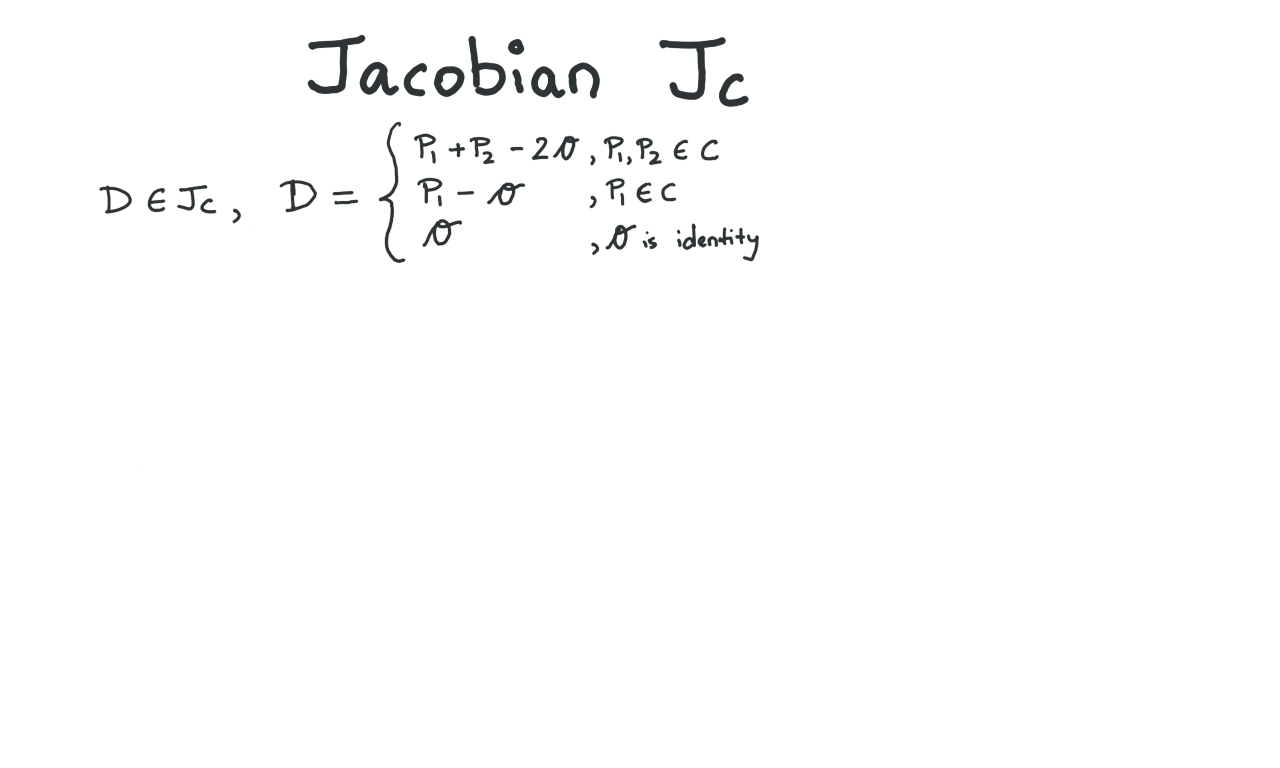 Jacobian J_C
D ∈ J_C, D = { P₁ + P₂ - 2𝒪, P₁, P₂ ∈ C
P₁ - 𝒪 , P₁ ∈ C
𝒪 , 𝒪 is identity